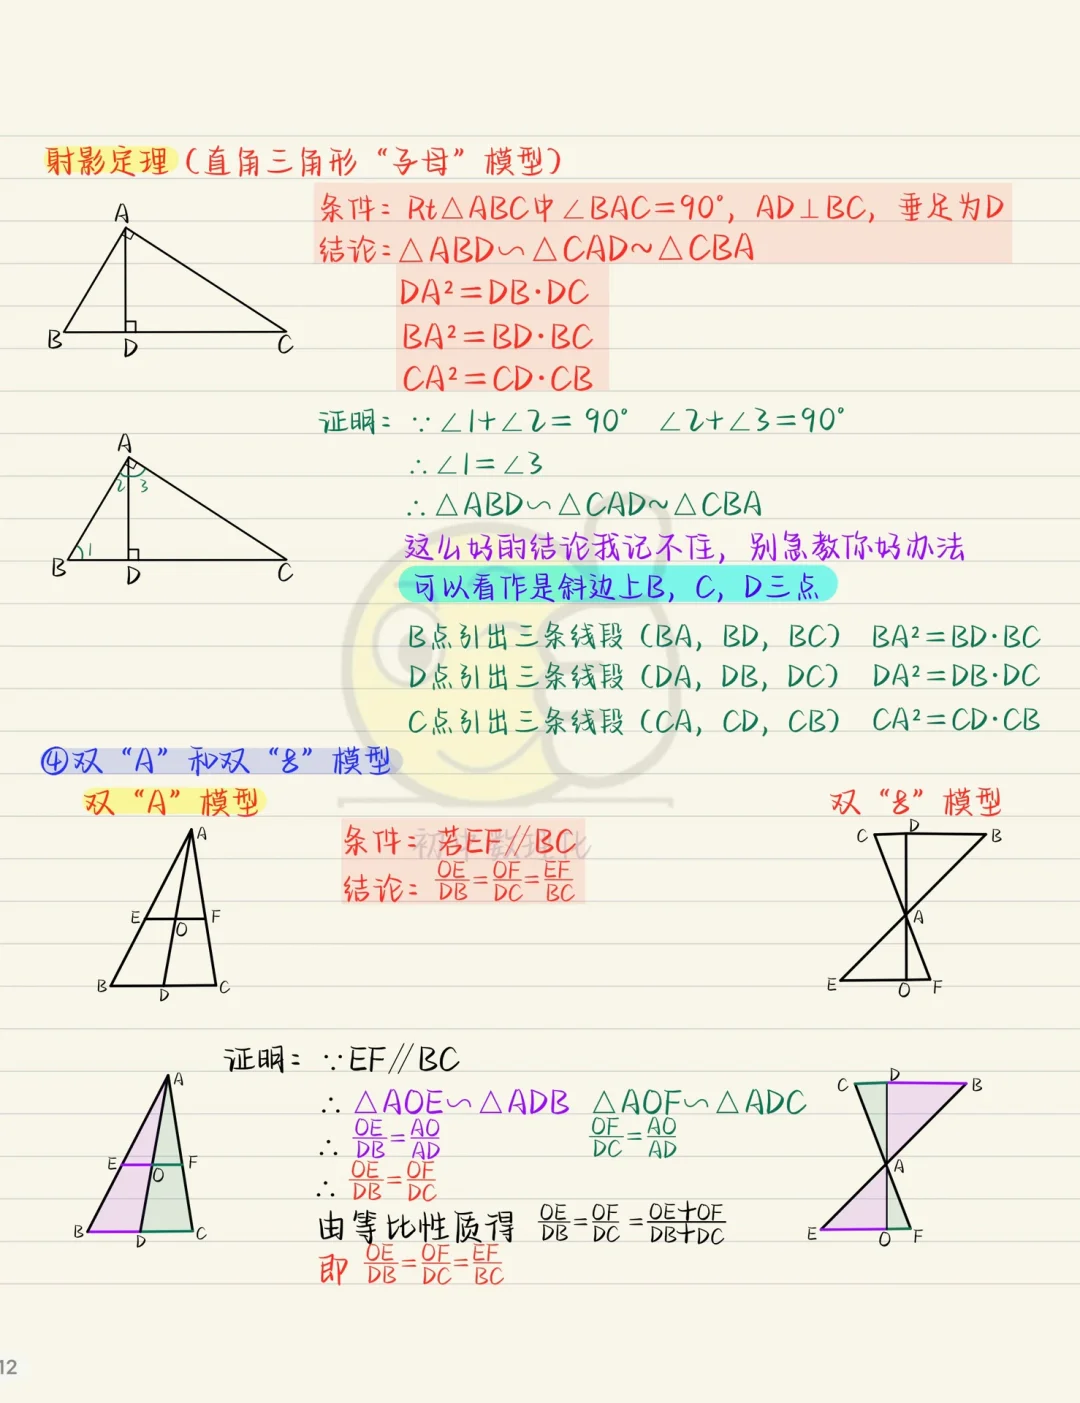 射影定理(直角三角形“子母”模型)
条件: Rt△ABC中∠BAC=90°, AD⊥BC, 垂足为D
结论:△ABD∽△CAD~△CBA
DA²=DB·DC
BA²=BD·BC
CA²=CD·CB
A
B
D
C
证明: ∵∠1+∠2=90° ∠2+∠3=90°
∴∠1=∠3
∴△ABD∽△CAD~△CBA
A
2 3
1
B
D
C
这么好的结论我记不住, 别急教你好办法
可以看作是斜边上B, C, D三点
B点引出三条线段(BA, BD, BC) BA²=BD·BC
D点引出三条线段(DA, DB, DC) DA²=DB·DC
C点引出三条线段(CA, CD, CB) CA²=CD·CB
④双“A”和双“8”模型
双“A”模型
双“8”模型
条件: 若EF//BC
结论: OE/DB=OF/DC=EF/BC
初中数理化
A
E
O
F
B
D
C
C
D
B
A
E
O
F
证明: ∵EF//BC
∴△AOE∽△ADB △AOF∽△ADC
∴ OE/DB=AO/AD OF/DC=AO/AD
∴ OE/DB=OF/DC
由等比性质得 OE/DB=OF/DC=OE+OF/DB+DC
即 OE/DB=OF/DC=EF/BC
A
E
O
F
B
D
C
C
D
B
A
E
O
F
12